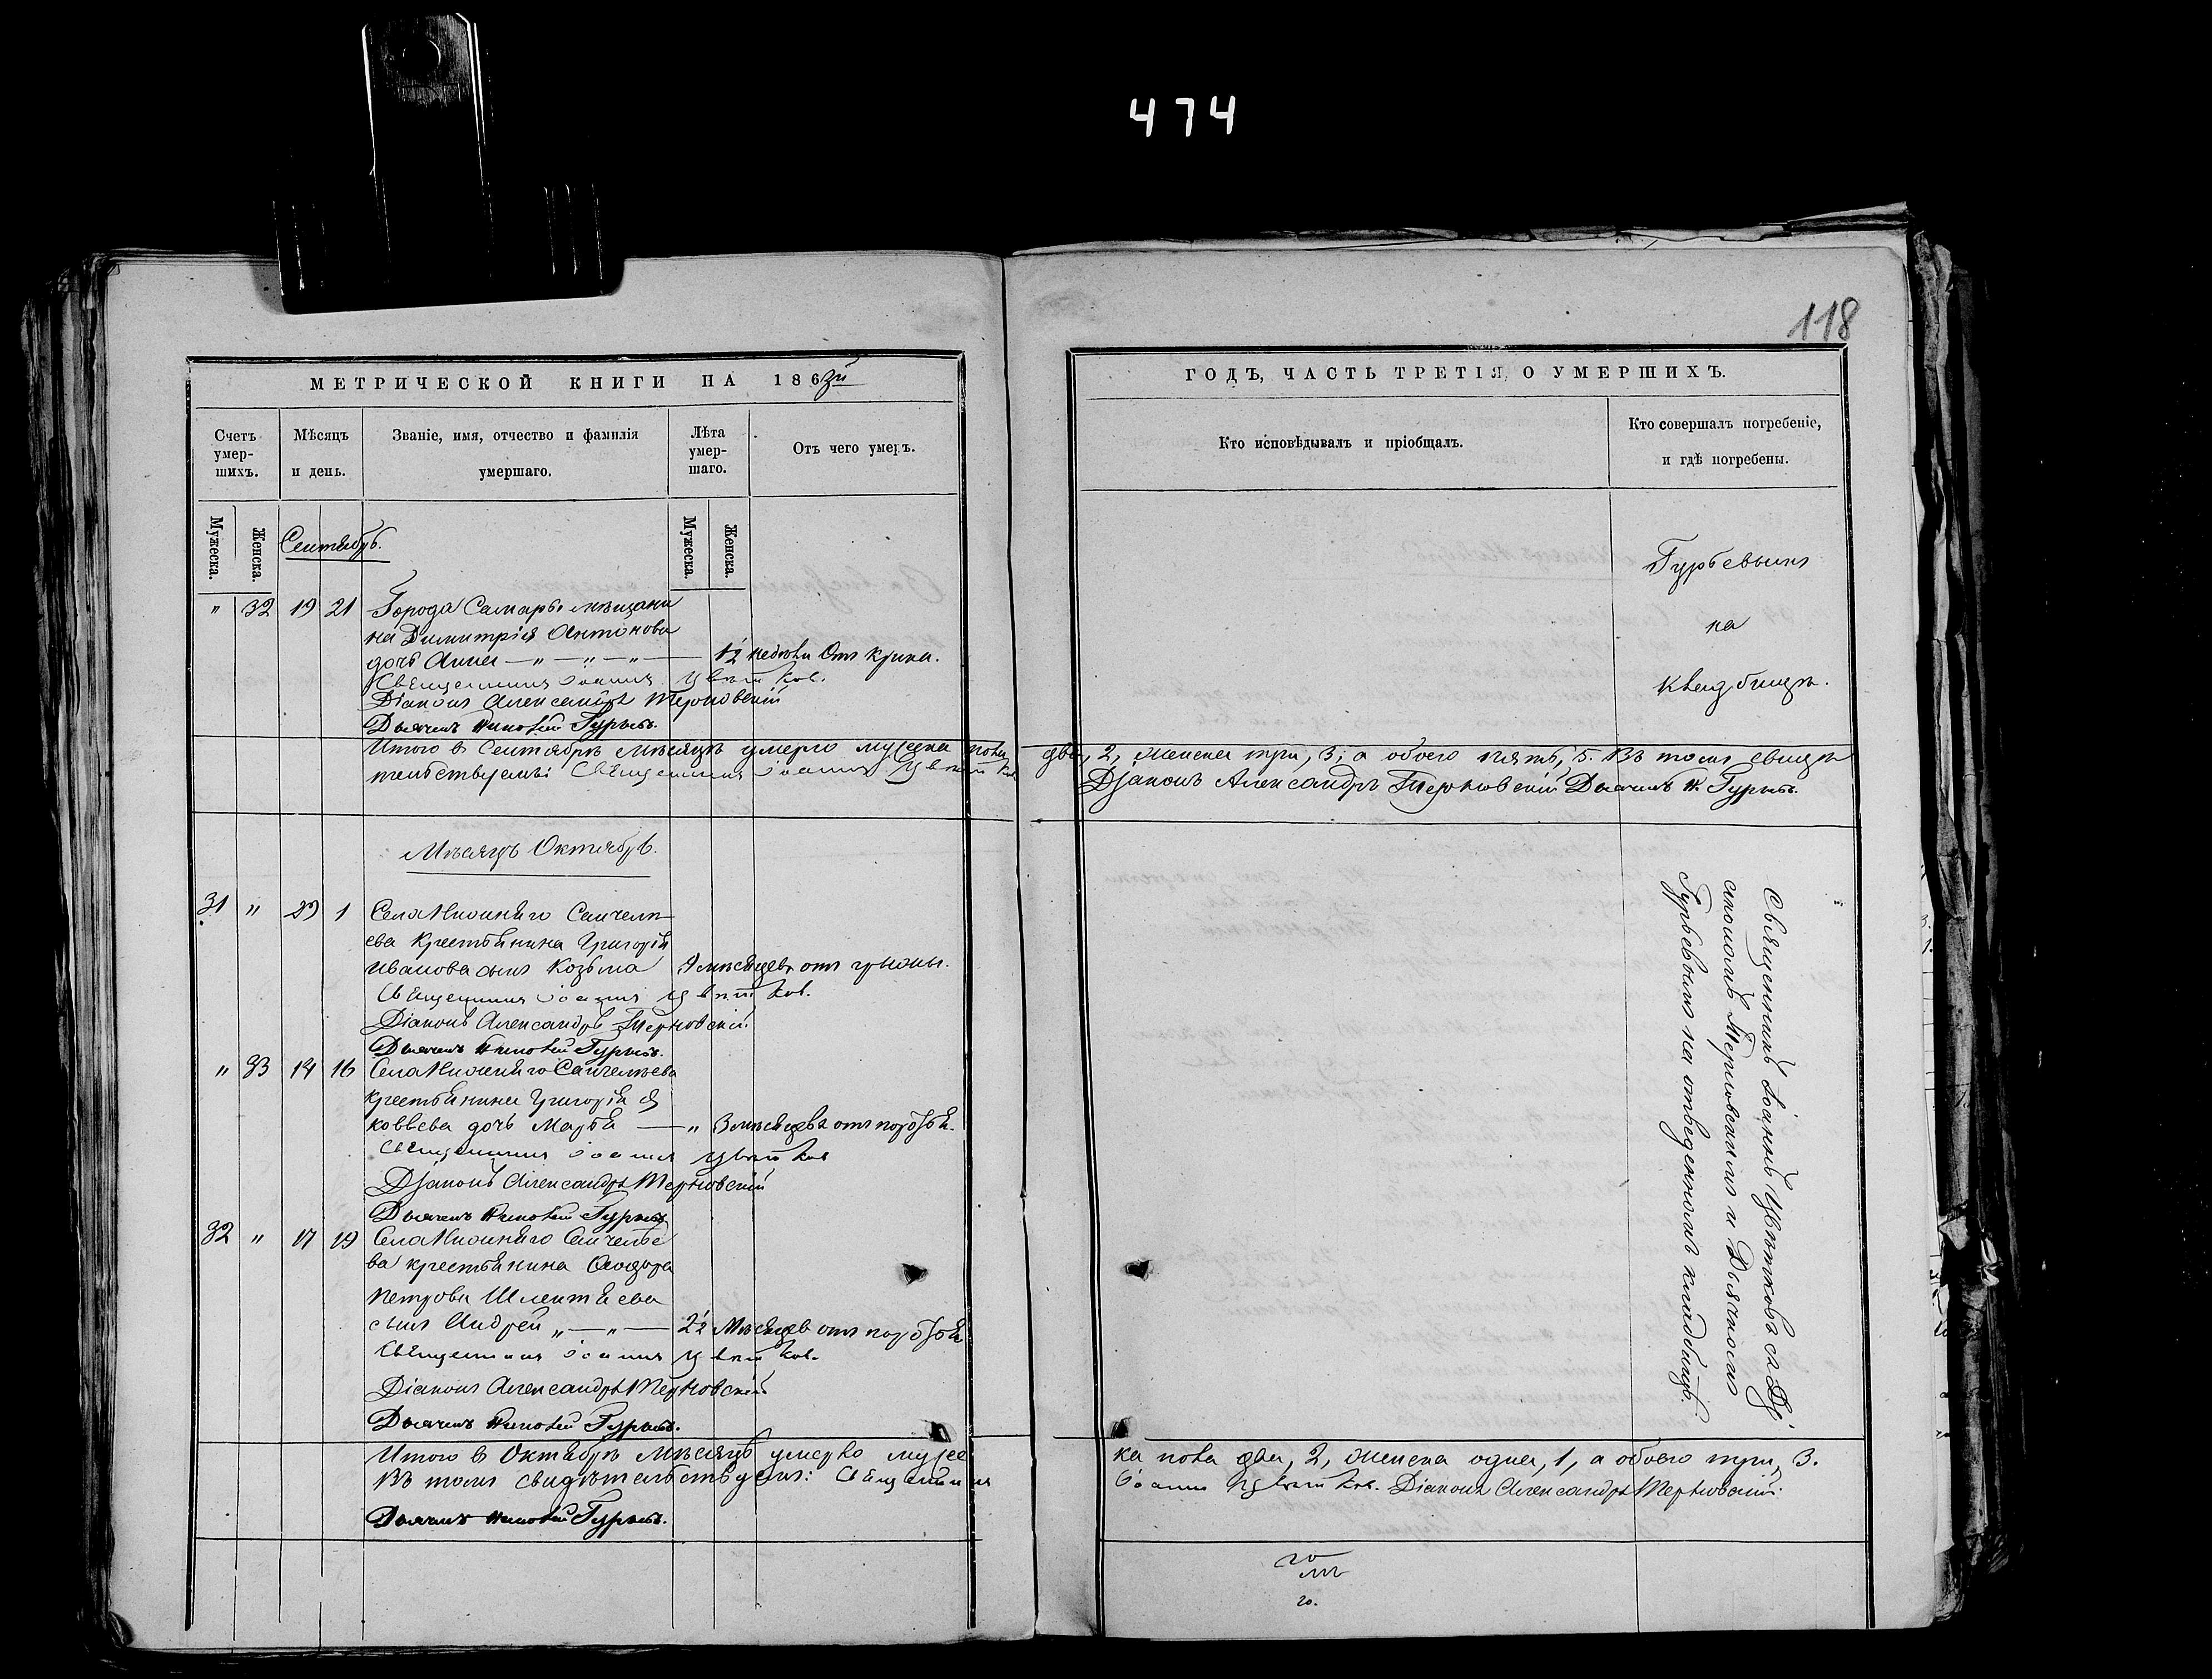 474
118
МЕТРИЧЕСКОЙ КНИГИ НА 186
Счетъ умер-шихъ.
Мѣсяцъ и день.
Званіе, имя, отчество и фамилія умершаго.
Лѣта умер-шаго.
Отъ чего умеръ.
Мужеска.
Женска.
Мужеска.
Женска.
Сентябрь.
" 32 19 21 Города Самары мѣщани
на Димитрія Антонова
дочь Анна — " — " — " — 1½ недѣли Отъ крика.
Священникъ Іоаннъ Цвѣтков.
Діаконъ Александръ Терновскій
Дьячекъ Гурьевъ.
Итого в Сентябрѣ мѣсяцѣ умерло мужеска пола
тельствуемъ: Священникъ Іоаннъ Цвѣтков
Мѣсяцъ Октябрь.
31 " 29 1 Села Нижняго Санчелѣ-
ева крестьянина Григорія
Иванова сынъ Козьма мѣсяцевъ отъ грыжи.
Священникъ Іоаннъ Цвѣтков.
Діаконъ Александръ Терновскій
Дьячекъ Гурьевъ.
" 33 14 16 Села Нижняго Санчелѣева
крестьянина Григорія Я
ковлева дочь Марѳа — " 3 мѣсяцевъ отъ
Священникъ Іоаннъ Цвѣтков
Діаконъ Александръ Терновскій
Дьячекъ Гурьевъ
32 " 17 19 Села Нижняго Санчелѣе
ва крестьянина Ѳеодора
Петрова
сынъ Андрей " — " — 2½ Мѣсяцев отъ
Священникъ Іоаннъ Цвѣтков.
Діаконъ Александръ Терновскій
Дьячекъ Гурьевъ.
Итого в Октябрѣ Мѣсяцѣ умерло мужес
Въ томъ свидѣтельствуемъ: Священникъ
Дьячекъ Гурьевъ.
ГОДЪ, ЧАСТЬ ТРЕТІЯ, О УМЕРШИХЪ.
Кто исповѣдывалъ и пріобщалъ.
Кто совершалъ погребеніе, и гдѣ погребены.
Гурьевымъ
на
кладбищѣ.
два, 2, Женска три, 3; а обоего пять, 5. Въ томъ свидѣ
Діаконъ Александръ Терновскій Дьячекъ Н. Гурьевъ.
Священникъ Іоаннъ Цвѣтковъ съ Ді
акономъ Терновскимъ и Дьячкомъ
Гурьевымъ на отведенномъ кладбищѣ.
ка пола два, 2, Женска одна, 1, а обоего три, 3.
Іоаннъ Цвѣтков. Діаконъ Александръ Терновскій.